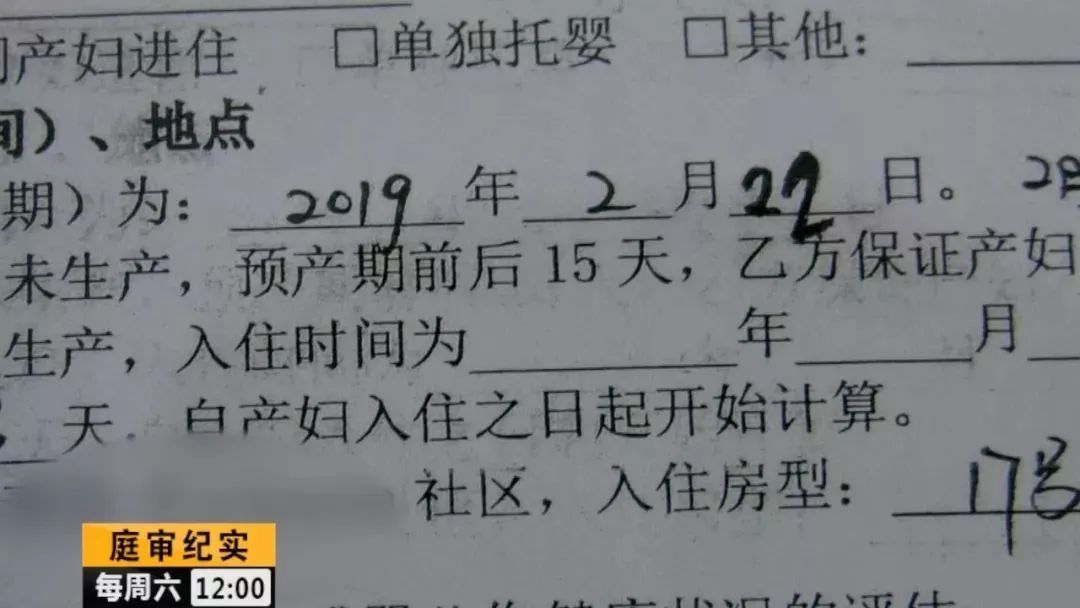 产妇进住 □单独托婴 □其他:
间)、地点
期)为: 2019 年 2 月 22 日。
未生产,预产期前后 15 天,乙方保证产妇
生产,入住时间为 年 月
天,自产妇入住之日起开始计算。
社区,入住房型: 17号
庭审纪实
每周六 12:00